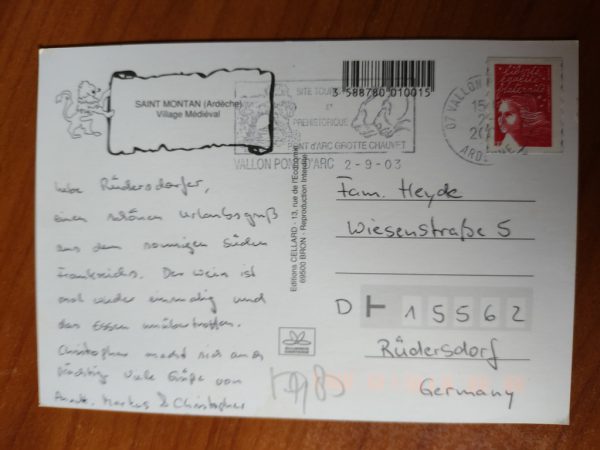 SAINT MONTAN (Ardèche)
Village Médiéval
3 588780 010015
SITE TOU
ET
PREHISTORIQUE
PONT d'ARC GROTTE CHAUVET
VALLON PONT D'ARC 2-9-03
07 VALLON
15
20
ARD
liberté
égalité
fraternité
Liebe Rüdersdorfer,
einen schönen Urlaubsgruß
aus dem sonnigen Süden
Frankreichs. Der Wein ist
mal wieder einmalig und
das Essen unübertroffen.
Christopher macht sich auch
prächtig Viele Grüße von
Markus & Christopher
Editions CELLARD - 13, rue de l'Economie
69500 BRON - Reproduction Interdite
Fam. Heyde
Wiesenstraße 5
D - 15562
Rüdersdorf
Germany